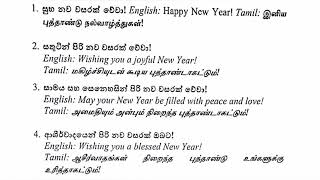 1. සුභ නව වසරක් වේවා! English: Happy New Year! Tamil: இனிய
புத்தாண்டு நல்வாழ்த்துகள்!
2. සතුටින් පිරි නව වසරක් වේවා!
English: Wishing you a joyful New Year!
Tamil: மகிழ்ச்சியுடன் கூடிய புத்தாண்டாகட்டும்!
3. සාමය සහ සෙනෙහසින් පිරි නව වසරක් වේවා!
English: May your New Year be filled with peace and love!
Tamil: அமைதியும் அன்பும் நிறைந்த புத்தாண்டாகட்டும்!
4. ආශීර්වාදයෙන් පිරි නව වසරක් ඔබට!
English: Wishing you a blessed New Year!
Tamil: ஆசீர்வாதங்கள் நிறைந்த புத்தாண்டு உங்களுக்கு
உரித்தாகட்டும்!